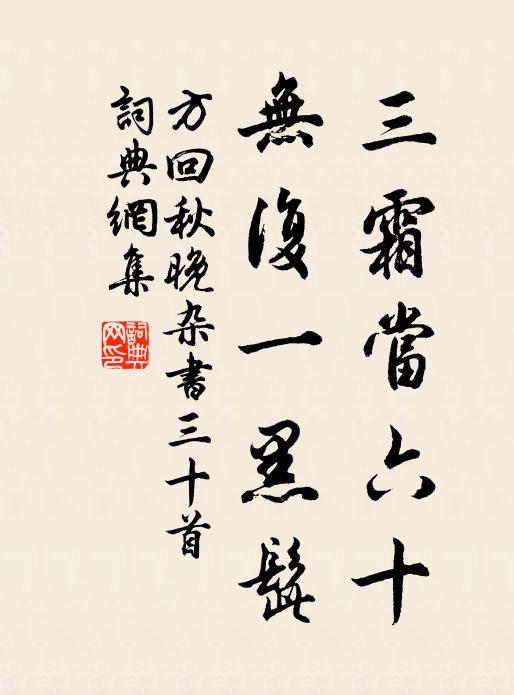 三霜當六十
無復一黑髭
方回秋晚杂書三十首
詞典網集
詞典網印